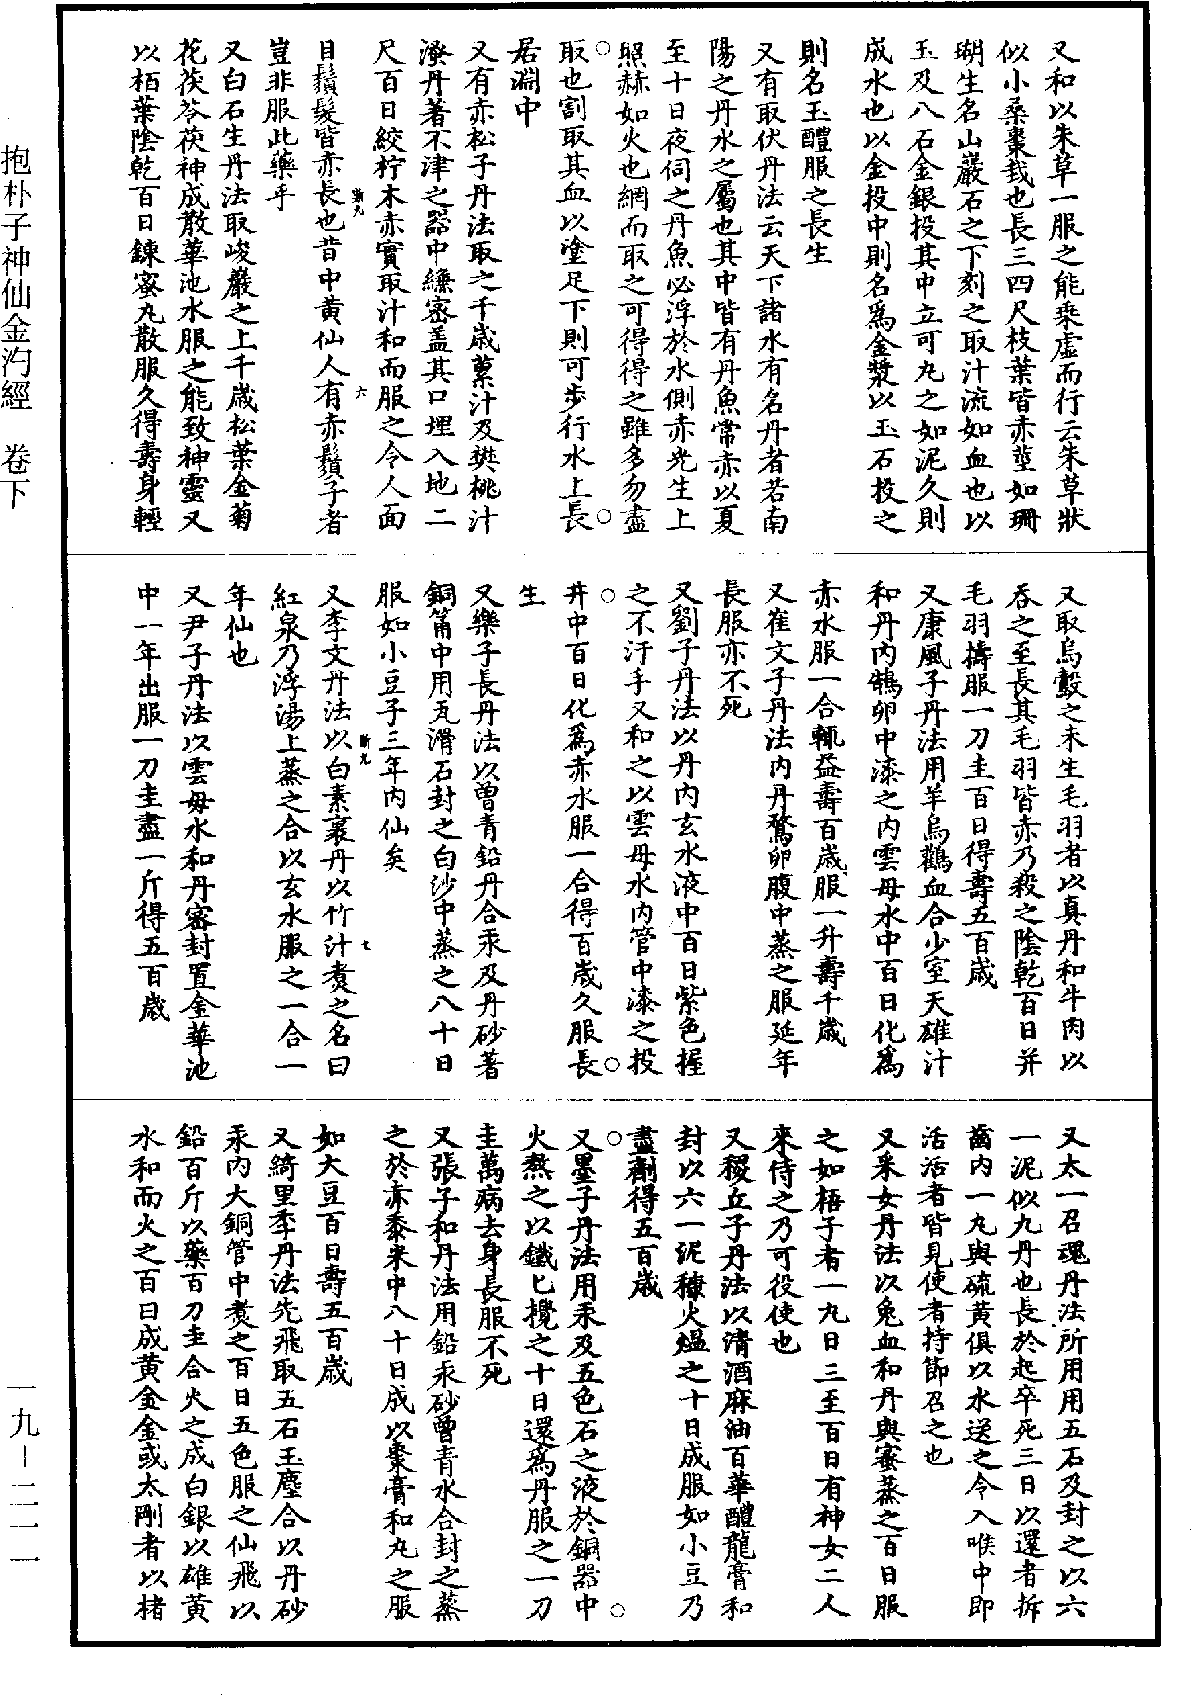 又和以朱草一服之能乘虛而行云朱草狀
似小桑棗栽也長三四尺枝葉皆赤莖如珊
瑚生名山巖石之下刻之取汁流如血也以
玉及八石金銀投其中立可丸之如泥久則
成水也以金投中則名爲金漿以玉石投之
則名玉醴服之長生
又有取伏丹法云天下諸水有名丹者若南
陽之丹水之屬也其中皆有丹魚常赤以夏
至十日夜伺之丹魚必浮於水側赤光生上
照赫如火也網而取之可得得之雖多勿盡
取也割取其血以塗足下則可步行水上長
居淵中
又有赤松子丹法取之千歲虆汁及樊桃汁
潑丹著不津之器中纁密蓋其口埋入地二
尺百日絞柠木赤實取汁和而服之令人面
目鬚髮皆赤長也昔中黃仙人有赤鬚子者
豈非服此藥乎
又白石生丹法取峻巖之上千歲松葉金菊
花茯苓茯神成散華池水服之能致神靈又
以栢葉陰乾百日鍊蜜丸散服久得壽身輕
又取烏鷇之未生毛羽者以真丹和牛肉以
吞之至長其毛羽皆赤乃殺之陰乾百日并
毛羽擣服一刀圭百日得壽五百歲
又康風子丹法用羊烏鸛血合少室天雄汁
和丹內鵠卵中漆之內雲母水中百日化爲
赤水服一合輒益壽百歲服一升壽千歲
又崔文子丹法內丹鶩卵腹中蒸之服延年
長服亦不死
又劉子丹法以丹內玄水液中百日紫色握
之不汙手又和之以雲母水內管中漆之投
井中百日化爲赤水服一合得百歲久服長
生
又樂子長丹法以曾青鉛丹合汞及丹砂著
銅筩中用瓦滑石封之白沙中蒸之八十日
服如小豆子三年內仙矣
又李文丹法以白素裹丹以竹汁煑之名曰
紅泉乃浮湯上蒸之合以玄水服之一合一
年仙也
又尹子丹法以雲母水和丹密封置金華池
中一年出服一刀圭盡一斤得五百歲
又太一召魂丹法所用用五石及封之以六
一泥似九丹也長於起卒死三日以還者拆
齒內一丸與硫黃俱以水送之令入喉中即
活活者皆見使者持節召之也
又采女丹法以兔血和丹與蜜蒸之百日服
之如梧子者一九日三至百日有神女二人
來侍之乃可役使也
又稷丘子丹法以清酒麻油百華醴龍膏和
封以六一泥糠火熅之十日成服如小豆乃
盡劑得五百歲
又墨子丹法用汞及五色石之液於銅器中
火熬之以鐵匕攪之十日還爲丹服之一刀
圭萬病去身長服不死
又張子和丹法用鉛汞砂曾青水合封之蒸
之於赤黍米中八十日成以棗膏和丸之服
如大豆百日壽五百歲
又綺里季丹法先飛取五石玉塵合以丹砂
汞內大銅管中煑之百日五色服之仙飛以
鉛百斤以藥百刀圭合火之成白銀以雄黃
水和而火之百日成黃金金或太剛者以楮
抱朴子神仙金汋經 卷下
一九-二一一